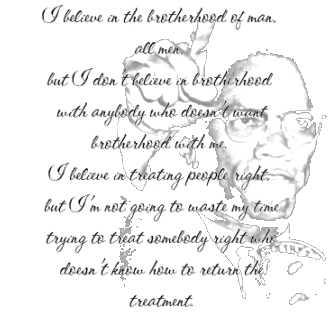 I believe in the brotherhood of man,
all men
but I don't believe in brotherhood
with anybody who doesn't want
brotherhood with me.
I believe in treating people right,
but I'm not going to waste my time
trying to treat somebody right who
doesn't know how to return the
treatment.